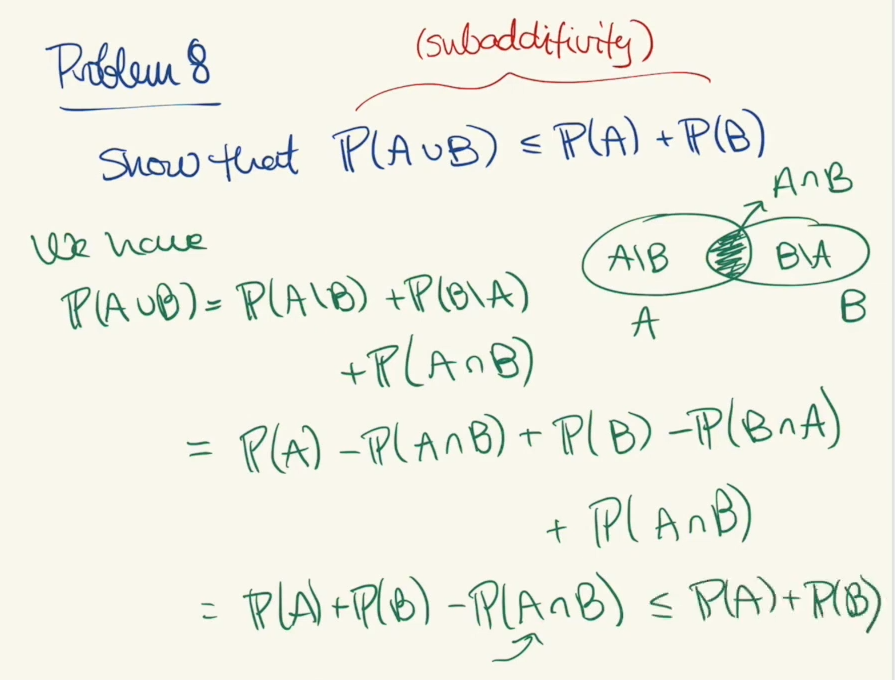 Problem 8
(subadditivity)
Show that ℙ(A∪B) ≤ ℙ(A) + ℙ(B)
A∩B
We have
A\B
B\A
A
B
ℙ(A∪B) = ℙ(A\B) + ℙ(B\A)
+ ℙ(A∩B)
= ℙ(A) - ℙ(A∩B) + ℙ(B) - ℙ(B∩A)
+ ℙ(A∩B)
= ℙ(A) + ℙ(B) - ℙ(A∩B) ≤ ℙ(A) + ℙ(B)